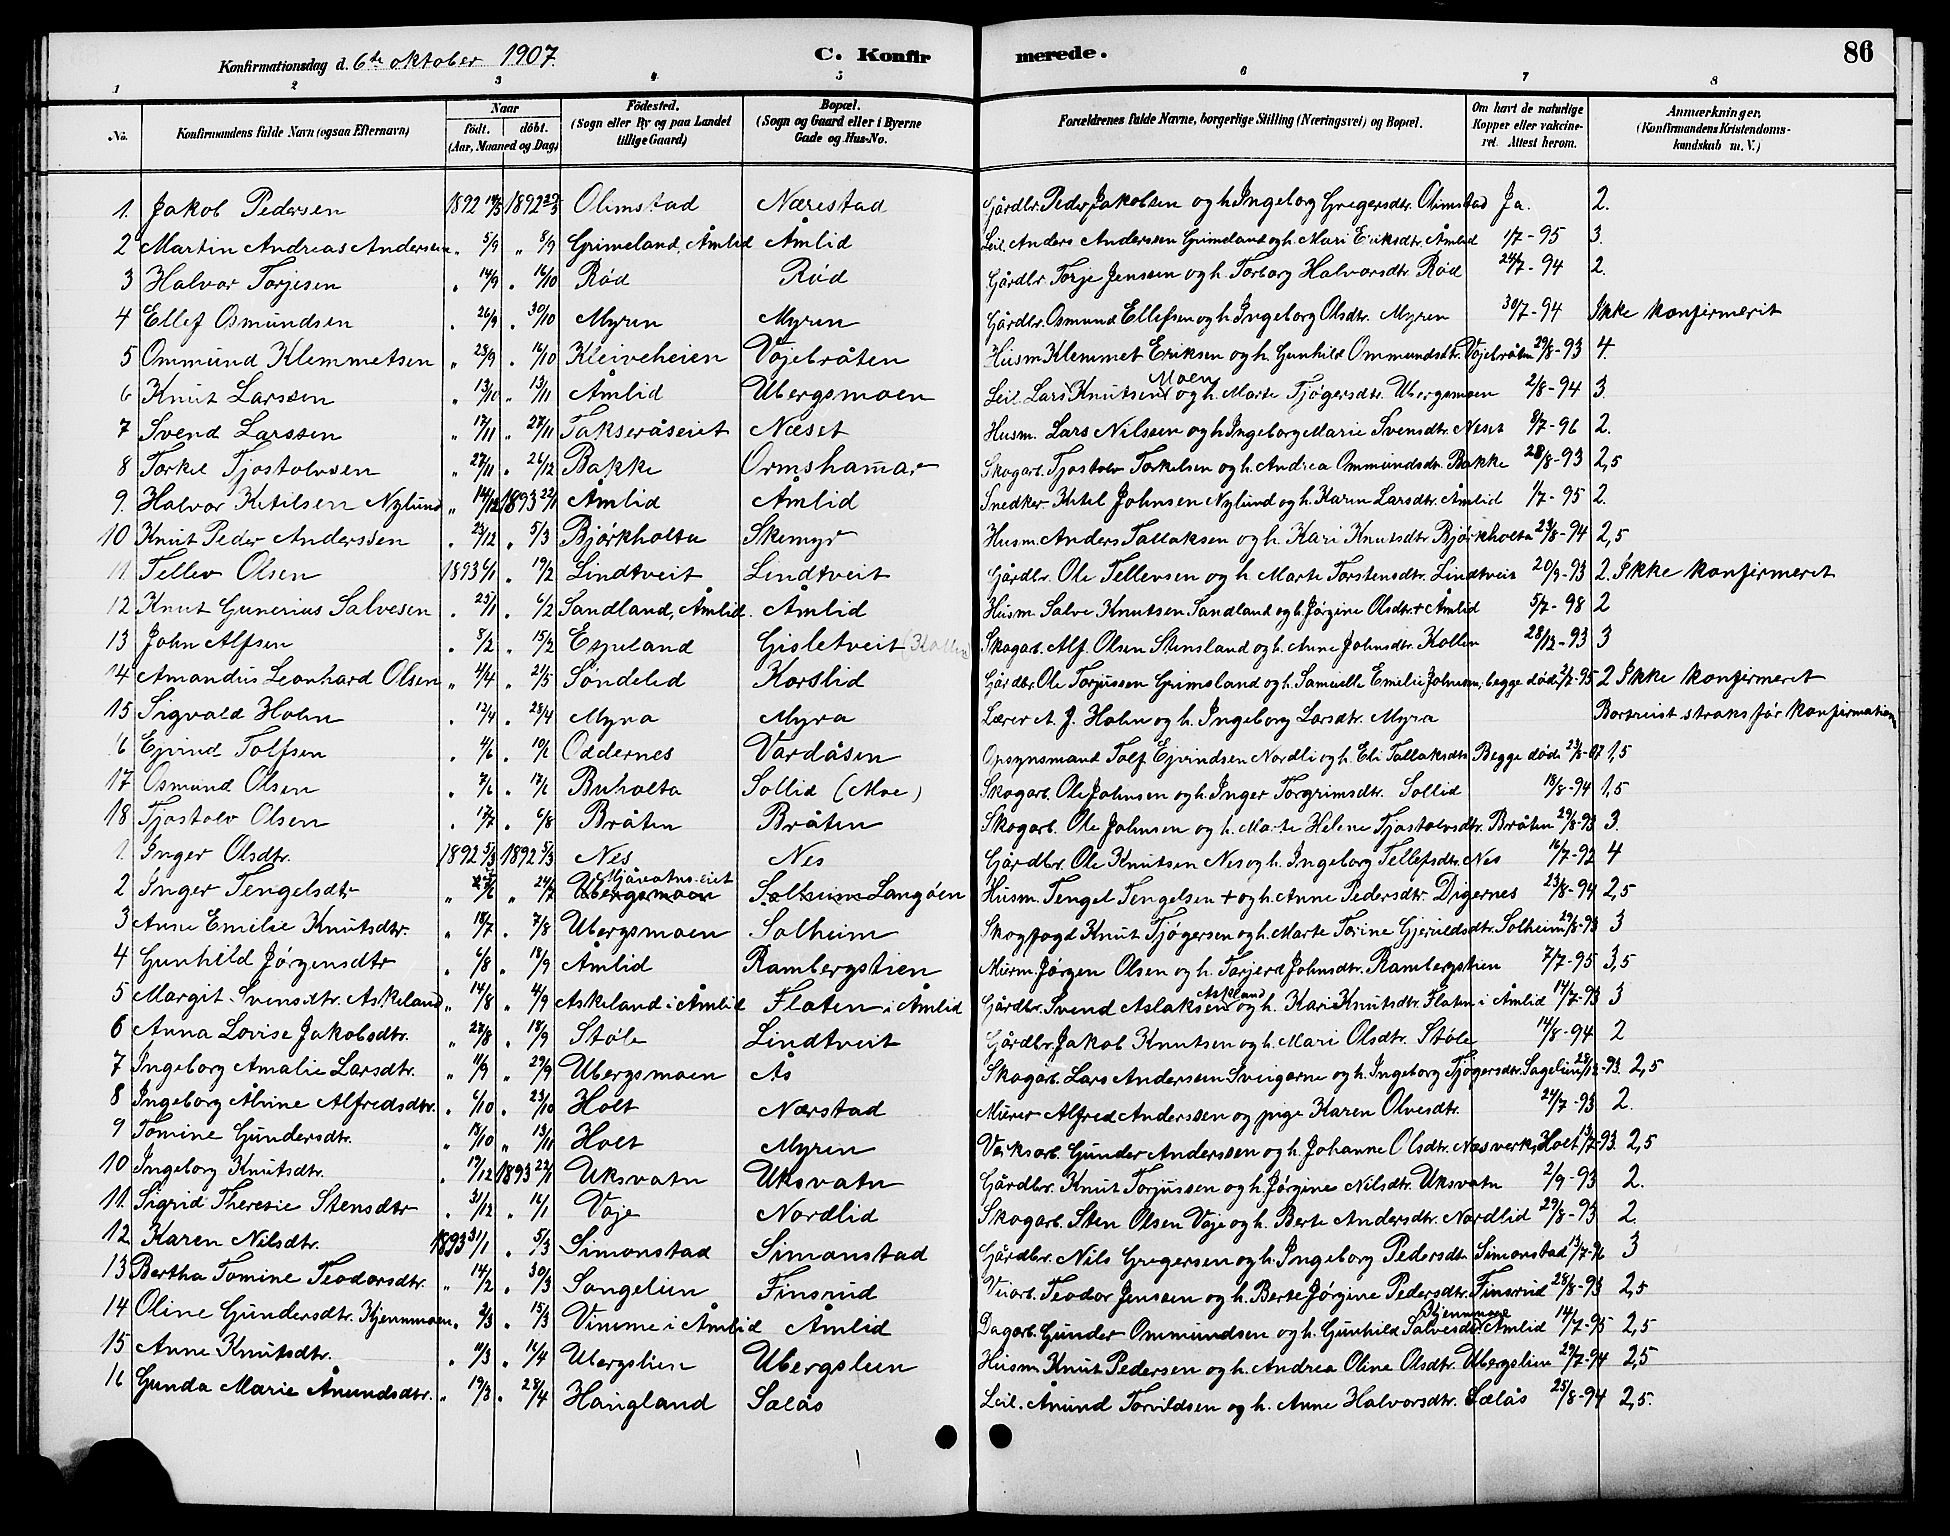 Konfirmationsdag d. 6te oktober 1907.
C. Konfirmerede.
86
1 2 3 4 5 6 7 8
No.
Konfirmandens fulde Navn (ogsaa Efternavn)
Naar
födt. döbt.
(Aar, Maaned og Dag)
Födested.
(Sogn eller By og paa Landet
tillige Gaard)
Bopæl.
(Sogn og Gaard eller i Byerne
Gade og Hus-No.
Forældrenes fulde Navne, borgerlige Stilling (Næringsvei) og Bopæl.
Om havt de naturlige
Kopper eller vakcine-
ret. Attest herom.
Anmærkninger.
(Konfirmandens Kristendoms-
kundskab m. V.)
1. Jakob Pedersen 1892 1892 Olimstad Nærestad Gårdbr. Peder Jakobsen og h. Ingeborg Gregersdtr. Olimstad Ja. 2.
2 Martin Andreas Anderssen " 5/9 " 8/9 Grimeland, Åmlid Åmlid Leil. Anders Anderssen Grimeland og h. Mari Eriksdtr. Åmlid 1/7-95 3.
3 Halvor Torjesen " 14/9 " 16/10 Rød Rød Gårdbr. Torje Jenssen og h. Torborg Halvorsdtr. Rød 24/7-94 2.
4 Ellef Osmundsen " 26/9 " 30/10 Myren Myren Gårdbr. Osmund Ellefsen og h. Ingeborg Olsdtr. Myren 30/7-94 Ikke konfirmerit
5 Ommund Klemmetsen " 28/9 " 16/10 Kleiveheien Vøjebråten Husm. Klemmet Eriksen og h. Gunhild Ommundsdtr. Vøjebråten 29/8-93 4.
6 Knut Larssen " 13/10 " 13/11 Åmlid Ubergsmoen Leil. Lars Knutsen Moen og h. Marte Tjøgersdtr. Ubergsmoen 2/8-94 3.
7 Svend Larssen " 17/11 " 27/11 Takseråseiet Næset Husm. Lars Nilssen og h Ingeborg Marie Svensdtr. Neset 8/7-96 2.
8 Torkel Tjostolvsen " 27/11 " 26/12 Bakke Ormshammar Skogarb. Tjostolv Torkelsen og h. Andrea Ommundsdtr. Bakke 28/8-93 2,5
9. Halvor Ketilsen Nylund " 14/12 1893 22/1 Åmlid Åmlid Snedker Ketel Johnsen Nylund og h. Karen Larsdtr. Åmlid 1/7-95 2.
10 Knut Peder Anderssen " 23/12 " 5/3 Bjørkholta Skemyr Husm. Anders Tallaksen og h. Kari Knutsdtr Bjørkholta 23/8-94 2,5
11. Tellev Olsen 1893 6/1 " 19/2 Lindtveit Lindtveit Gårdbr. Ole Tellevsen og h Marte Torstensdtr. Lindtveit 20/9-93 2. Ikke konfirmeret
12 Knut Gunerius Salvesen " 25/1 " 6/2 Sandland, Åmlid. Åmlid Husm. Salve Knutsen Sandland og h. Jørgine Olsdtr. + Åmlid 5/7-98 2
13 John Alfsen " 8/2 " 15/2 Espeland Gisletveit (Kollen) Skogarb. Alf Olsen Stensland og h. Anne Johnsdtr. Kollen 28/12-93 3
14 Amandus Leonhard Olsen " 4/4 " 2/5 Søndeled Korslid Gårdbr. Ole Torjussen Grimsland og h. Samuelle Emelie Johnsen, begge døde -95 2 Ikke konfirmeret
15 Sigvald Holm " 12/4 " 28/4 Myra Myra Lærer et J. Holm og h. Ingeborg Larsdtr. Myra Bortreist straks før konfirmation
16 Ejvind Tolfsen " 4/6 " 10/6 Oddernes Vardåsen Opsynsmand Tolf Ejvindsen Nordli og h. Eli Tallaksdtr Begge døde -07 1,5
17 Osmund Olsen " 7/6 " 17/6 Buholta Sollid (Moe) Skogarb. Ole Johnsen og h. Inger Torgrimsdtr. Sollid 18/8-94 1,5
18 Tjostolv Olsen " 17/7 " 6/8 Bråten Bråten Skogarb. Ole Johnsen og h. Marte Helene Tjostolvsdtr. Bråten 29/8-93 3.
1. Inger Olsdtr. 1892 5/3 1892 5/3 Nes Nes Gårdbr. Ole Knutsen Nes og h. Ingeborg Tellefsdtr. Nes 16/7-92 4
2 Inger Tengelsdtr " " 24/7 Mjåvatns-eiet Ubergsmoen Solheim Langøen Husm. Tengel Tengelsen + og h. Anne Pedersdtr. Digernes 23/8-94 2,5
3 Anne Emilie Knutsdtr. " 18/7 " 7/8 Ubergsmoen Solheim Skogfogd Knut Tjøgersen og h. Marte Torine Gjeruldsdtr. Solheim 29/8-93 3
4 Gunhild Jørgensdtr " 6/8 " 18/9 Åmlid Rambergstien Murm. Jørgen Olsen og h. Torjerd Johnsdtr. Rambergstien 7/7-95 3,5
5 Margit Svensdtr. Askeland " 14/8 " 4/9 Askeland i Åmlid Flaten i Åmlid Gårdbr. Svend Aslaksen Askland og h. Kari Knutsdtr. Flaten i Åmlid 14/7-93 3
6 Anna Lovise Jakobsdtr. " 28/8 " 18/9 Støle Lindtveit Gårdbr. Jakob Knutsen og h. Mari Olsdtr. Støle 14/8-94 2
7 Ingeborg Amalie Larsdtr. " 11/9 " 29/9 Ubergsmoen Ås Skogarb. Lars Anderssen Sveigerne og h. Ingeborg Tjøgersdtr. Sagelien 28/12-93. 2,5
8 Ingeborg Alvine Alfredsdtr. " 6/10 " 23/10 Holt Nærstad Murer Alfred Anderssen og pige Karen Olvesdtr. 24/7-93 2.
9 Tomine Gundersdtr. " 13/10 " 13/11 Holt Myren Verksarb. Gunder Anderssen og h. Johanne Olsdtr. Næsverk, Holt 13/7-93. 2,5
10 Ingeborg Knutsdtr. " 19/12 1893 22/1 Uksvatn Uksvatn Gårdbr. Knut Torjussen og h. Jørgine Nilsdtr. Uksvatn 2/9-93 2.
11. Sigrid Theresie Stensdtr " 31/12 " 16/1 Voje Nordlid Skogarb. Sten Olsen Voje og h. Berte Andersdtr. Nordlid 29/8-93 2.
12 Karen Nilsdtr. 1893 31/1 " 5/3 Simonstad Simonstad Gårdbr. Nils Gregersen og h. Ingeborg Pedersdtr Simonstad 13/7-96 3
13 Bertha Tomine Teodorsdtr. " 14/2 " 30/3 Songelien Finsrud Veiarb. Teodor Jenssen og h. Berte Jørgine Pedersdtr. Finsrud 28/8-93 2,5
14 Oline Gundersdtr. Hjemmoen " 2/3 " 15/3 Vimme i Åmlid Åmlid Dagarb. Gunder Ommundsen og h. Gunhild Salvesdtr Åmlid 14/7-95 2,5
15 Anne Knutsdtr. " 11/3 " 16/4 Ubergslien Ubergslien Husm. Knut Pedersen og h. Andrea Oline Olsdtr. Ubergslien 29/7-94 2,5
16 Gunda Marie Ånundsdtr. " 19/3 " 28/4 Haugland Selås Leil. Ånund Torvildsen og h. Anne Halvorsdtr. Selås 25/8-94 2,5.